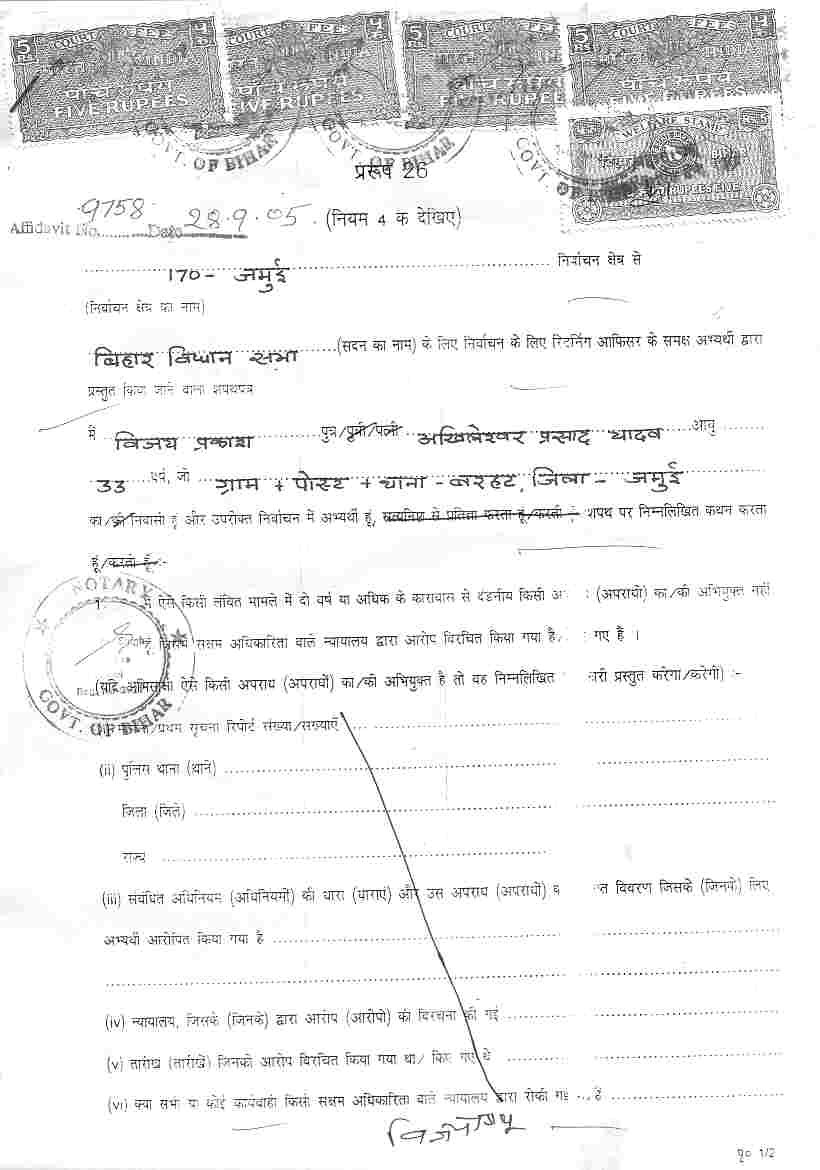 5 Rs. COURT FEES ५ रु. COURT FEES COURT FEES 5 Rs. COURT FEES ५ रु.
भारत INDIA INDIA भारत INDIA
पाँच रुपये पाँच रुपये पाँच रुपये पाँच रुपये
FIVE RUPEES FIVE RUPEES FIVE RUPEES FIVE RUPEES
WELFARE STAMP
RUPEES FIVE
GOVT. OF BIHAR GOVT. OF BIHAR GOVT. OF BIHAR
प्ररूप 26
Affidavit No. 9758 Date 28.9.05. (नियम 4 क देखिए)
170- जमुई निर्वाचन क्षेत्र से
(निर्वाचन क्षेत्र का नाम)
बिहार विधान सभा (सदन का नाम) के लिए निर्वाचन के लिए रिटर्निंग आफिसर के समक्ष अभ्यर्थी द्वारा
प्रस्तुत किए जाने वाला शपथपत्र
मैं विजय प्रकाश पुत्र/पुत्री/पत्नी अखिलेश्वर प्रसाद यादव आयु
33 वर्ष, जो ग्राम + पोस्ट + थाना - बरहट, जिला - जमुई
का/की निवासी हूं और उपरोक्त निर्वाचन में अभ्यर्थी हूं, सत्यनिष्ठा से प्रतिज्ञा करता हूं/करती हूं शपथ पर निम्नलिखित कथन करता
हूं/करती हूँ :-
ऐसे किसी लंबित मामले में दो वर्ष या अधिक के कारावास से दंडनीय किसी (अपराधों) का/की अभियुक्त नहीं
सक्षम अधिकारिता वाले न्यायालय द्वारा आरोप विरचित किया गया है/ गए है ।
(यदि अभिसाक्षी ऐसे किसी अपराध (अपराधों) का/की अभियुक्त है तो वह निम्नलिखित कारी प्रस्तुत करेगा/करेगी) :-
NOTARY
GOVT. OF BIHAR
/प्रथम सूचना रिपोर्ट संख्या/संख्याएँ
(ii) पुलिस थाना (थाने)
जिला (जिले)
राज्य
(iii) संबंधित अधिनियम (अधिनियमों) की धारा (धाराएं) और उस अपराध (अपराधों) त विवरण जिसके (जिनके) लिए
अभ्यर्थी आरोपित किया गया है
(iv) न्यायालय, जिसके (जिनके) द्वारा आरोप (आरोपों) की विरचना की गई
(v) तारीख (तारीखें) जिनको आरोप विरचित किया गया था/ किए गए थे
(vi) क्या सभी या कोई कार्यवाही किसी सक्षम अधिकारिता वाले न्यायालय द्वारा रोकी गई है
पृ० 1/2